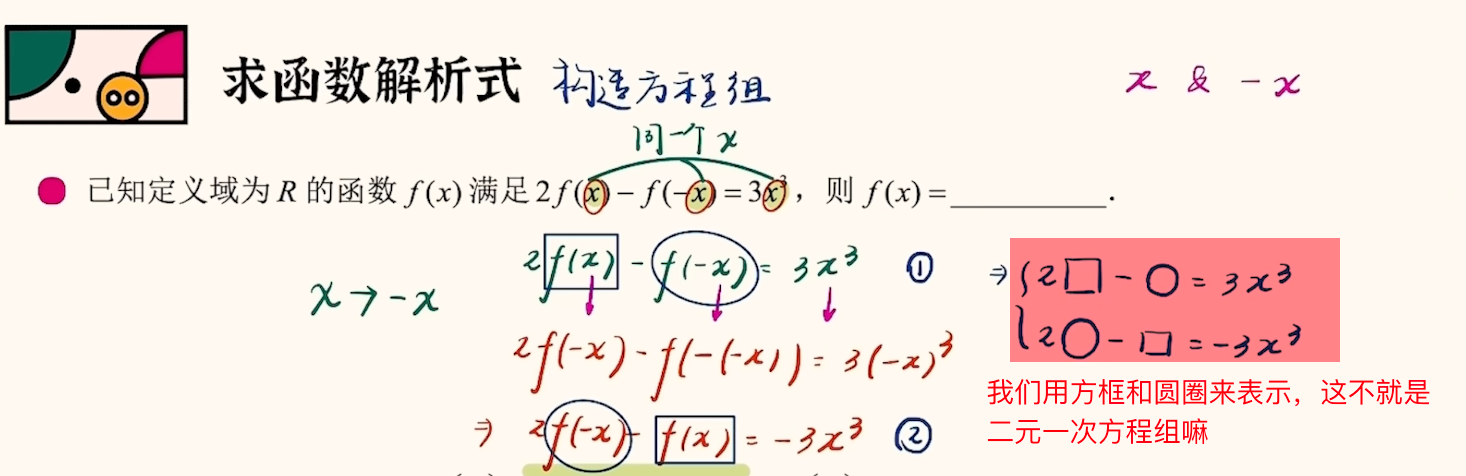 求函数解析式 构造方程组
x & -x
同一个 x
已知定义域为 R 的函数 f(x) 满足 2f(x) − f(−x) = 3x³，则 f(x) = ________．
2f(x) - f(-x) = 3x³ ①
x → -x
2f(-x) - f(-(-x)) = 3(-x)³
⇒ 2f(-x) - f(x) = -3x³ ②
⇒ { 2□ - ○ = 3x³
2○ - □ = -3x³
我们用方框和圆圈来表示，这不就是
二元一次方程组嘛